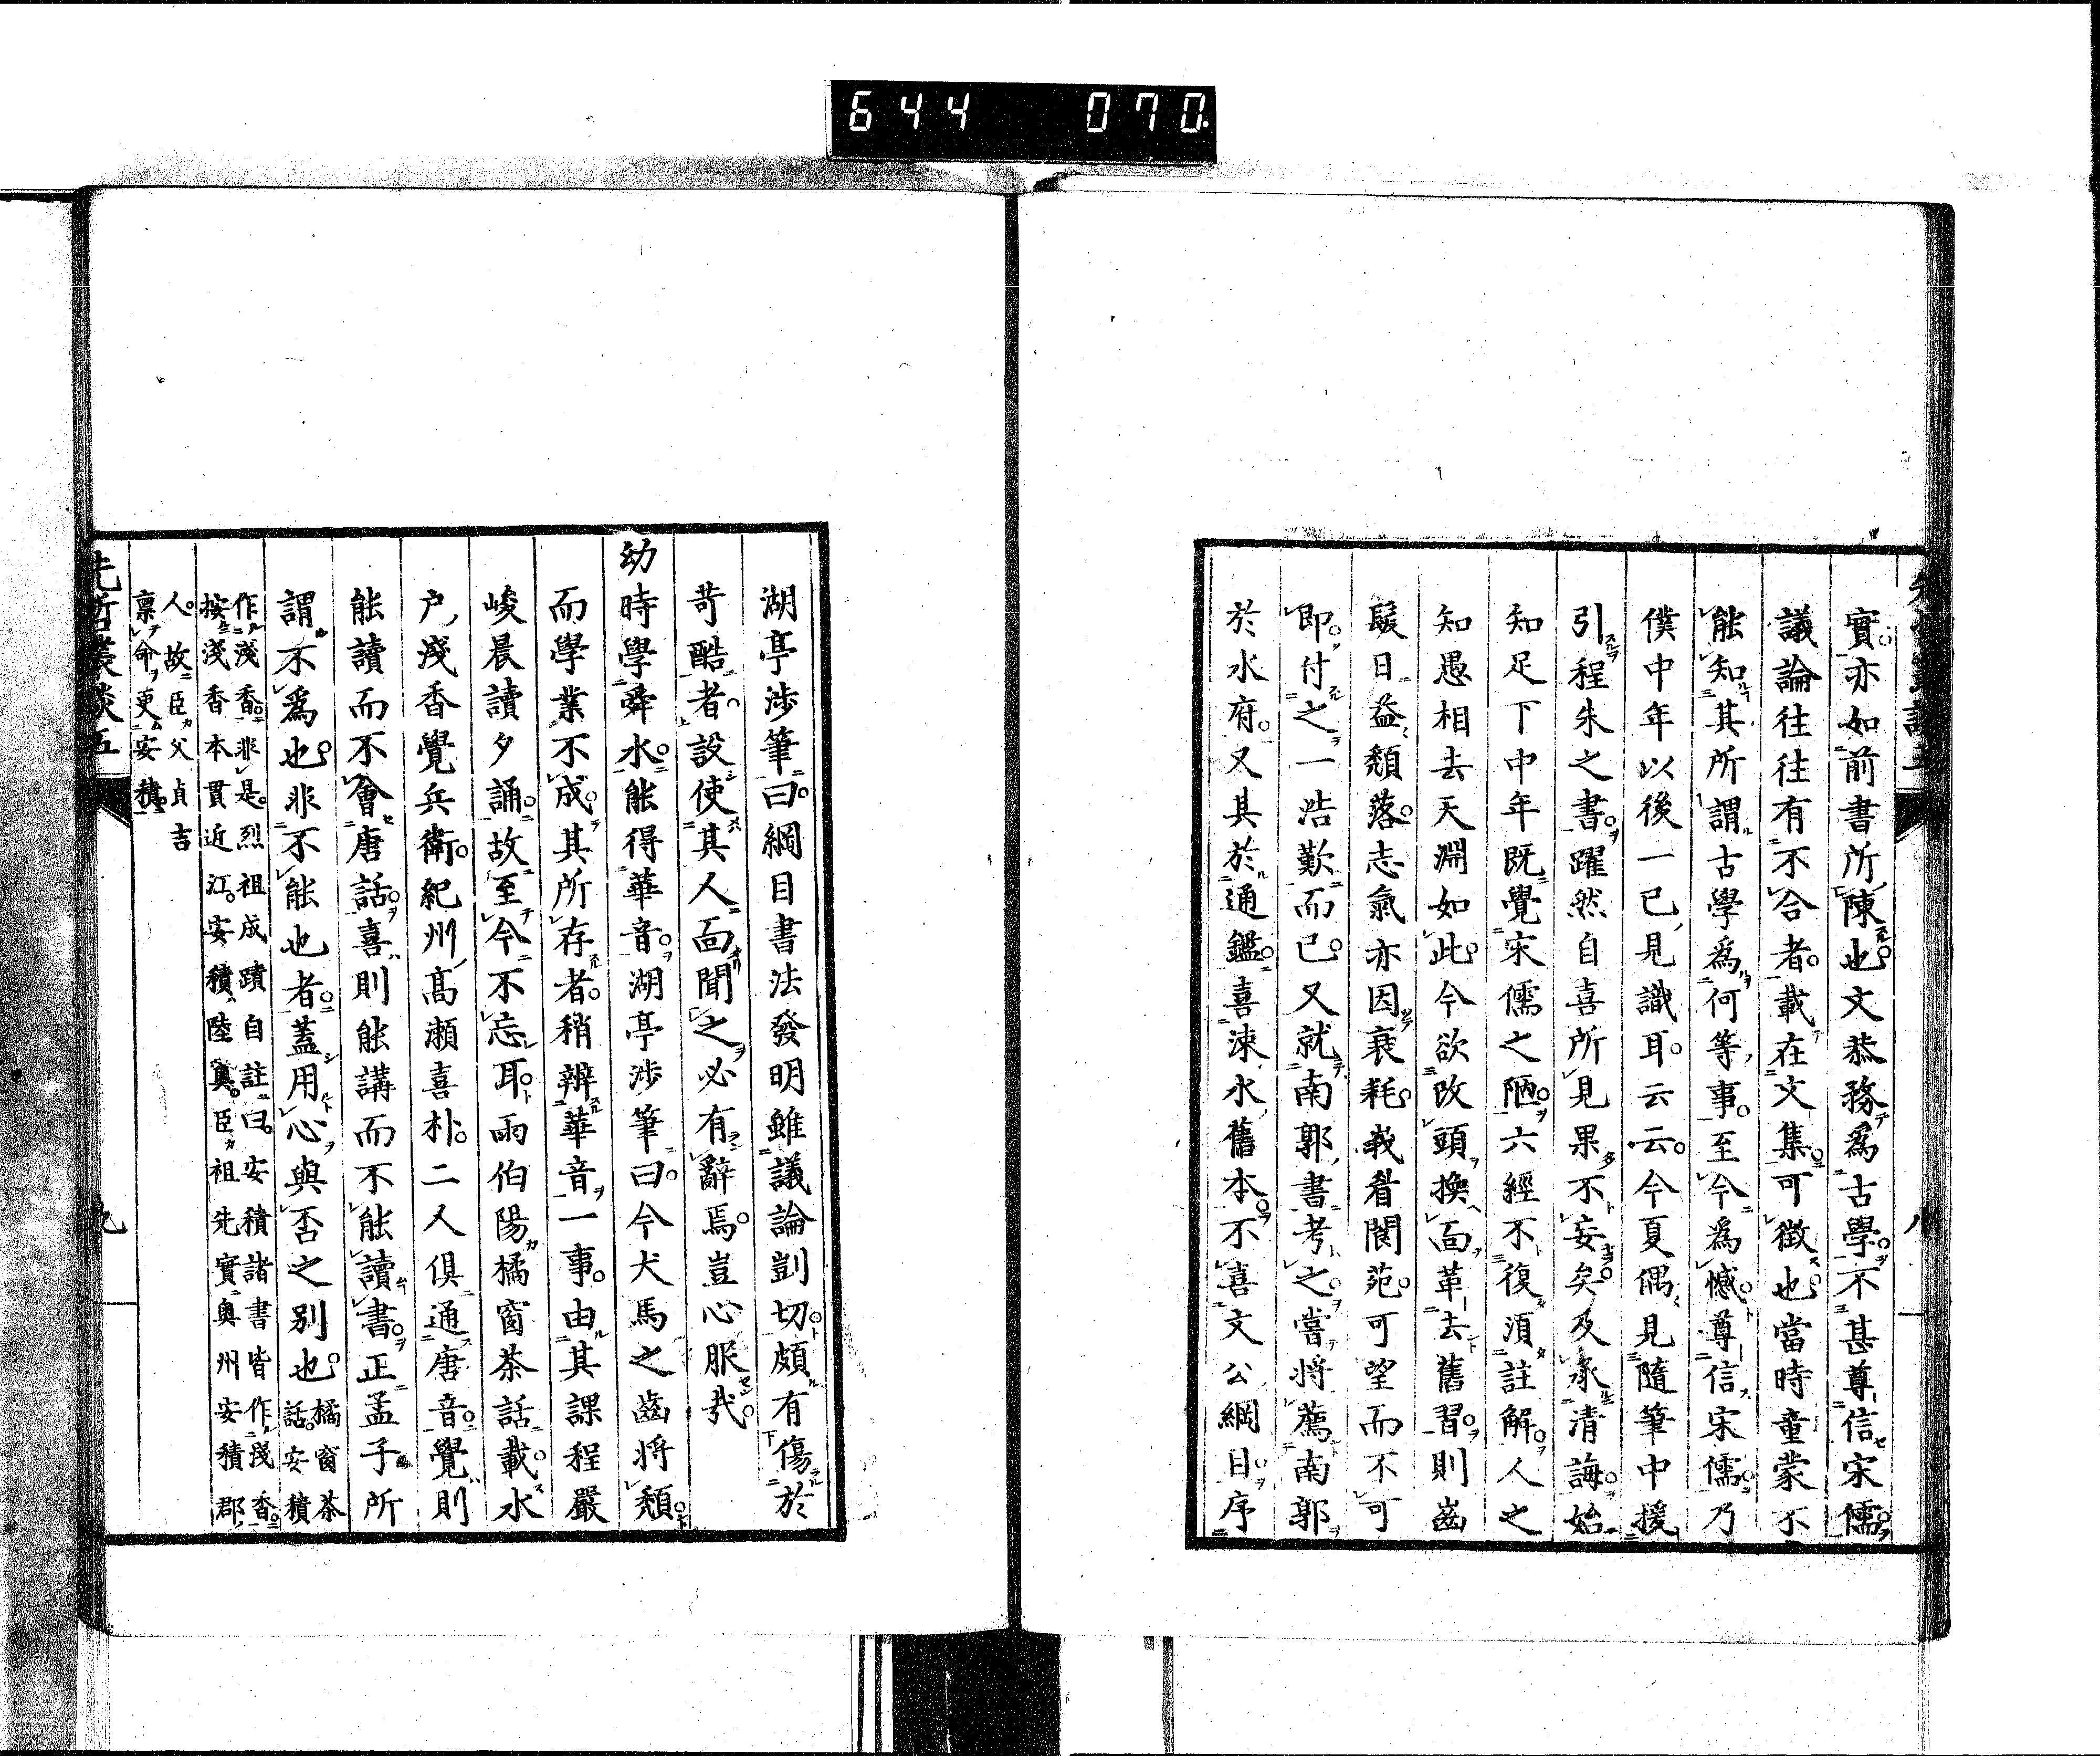 644 070
實亦如前書所陳也文恭務爲古學不甚尊信宋儒
議論往往有不合者載在文集可徵也當時童蒙不
能知其所謂古學爲何等事至今爲憾尊信宋儒乃
僕中年以後一己見識耳云云今夏偶見隨筆中援
引程朱之書躍然自喜所見果不妄矣及承清誨始
知足下中年既覺宋儒之陋六經不復須註解人之
知愚相去天淵如此今欲改頭換面革去舊習則齒
髮日益頽落志氣亦因衰耗我看閬苑可望而不可
即付之一浩歎而已又就南郭書考之嘗將薦南郭
於水府又其於通鑑喜涑水舊本不喜文公綱目序
湖亭涉筆曰綱目書法發明雖議論剴切頗有傷於
苛酷者設使其人面聞之必有辭焉豈心服哉
幼時學舜水能得華音湖亭涉筆曰今犬馬之齒將頽
而學業不成其所存者稍辨華音一事由其課程嚴
峻晨讀夕誦故至今不忘耳雨伯陽橘窗茶話載水
戶淺香覺兵衛紀州高瀨喜朴二人俱通唐音覺則
能讀而不會唐話喜則能講而不能讀書正孟子所
謂不爲也非不能也者蓋用心與否之別也橘窗茶
話安積
作淺香非是烈祖成蹟自註曰安積諸書皆作淺香
按淺香本貫近江安積陸奧臣祖先實奥州安積郡
人故臣父貞吉
稟命更安積
先哲叢談五
九
八